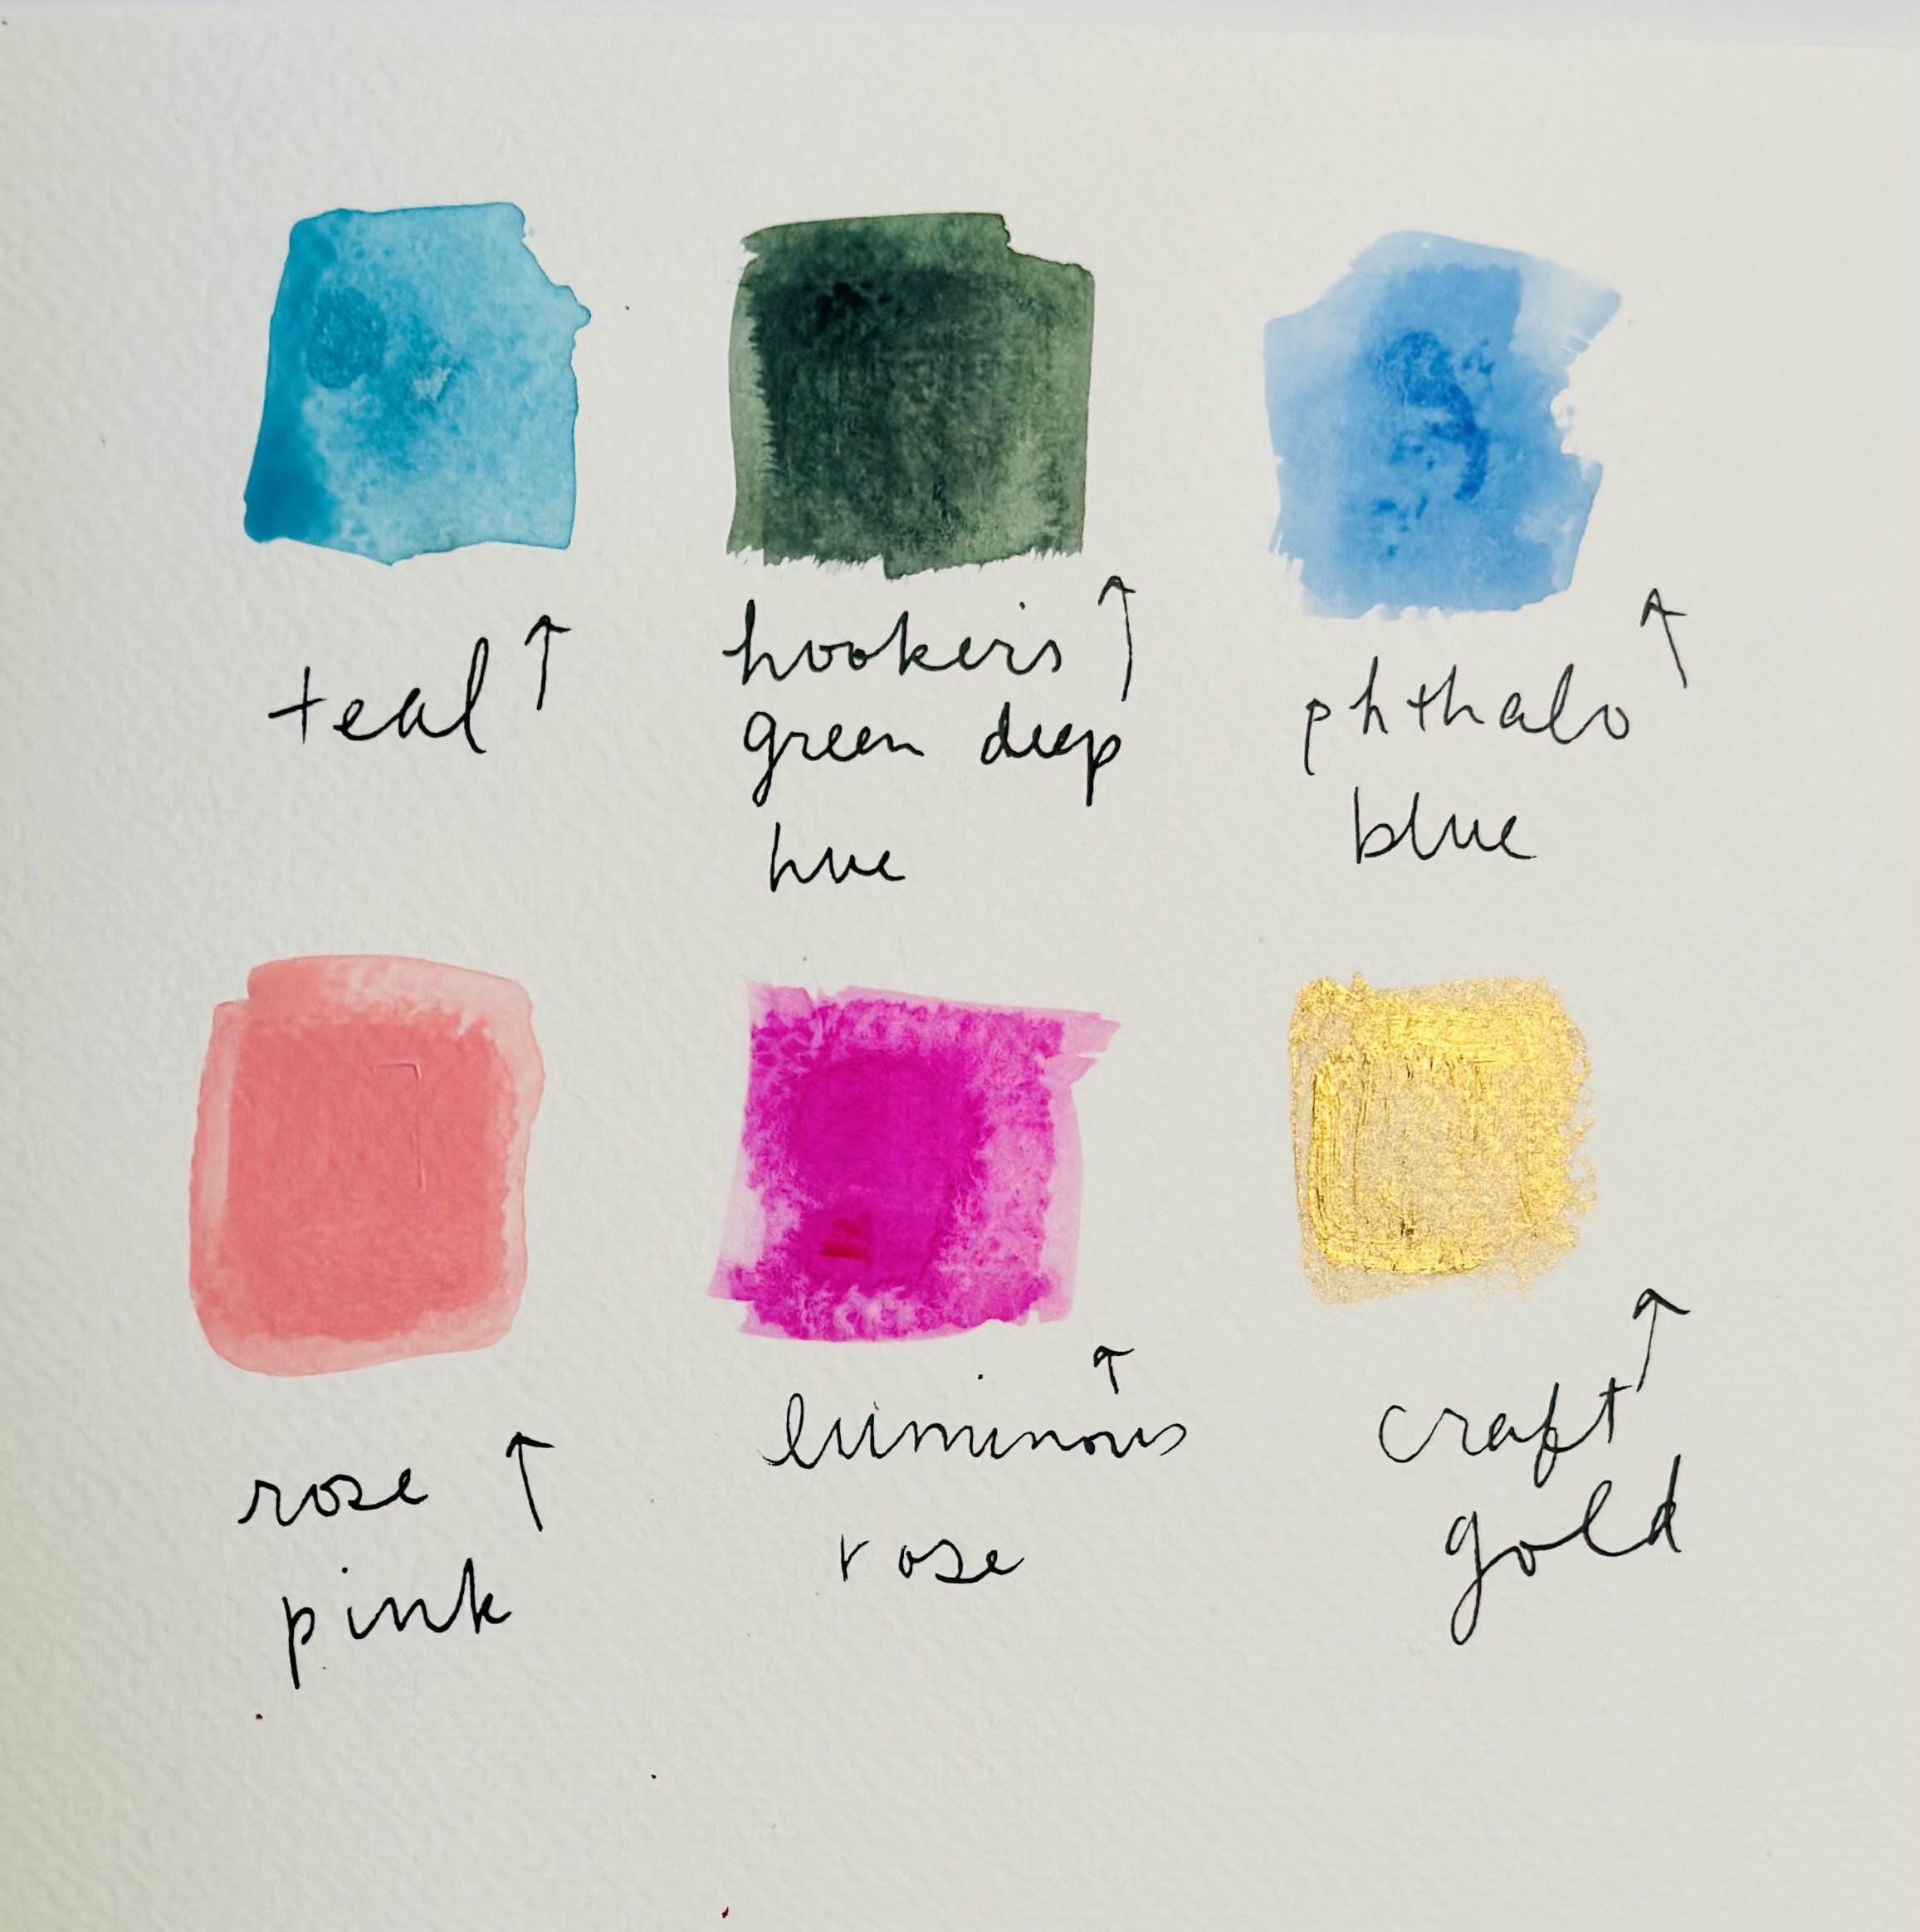 teal ↑
hooker's ↑
green deep
hue
phthalo ↑
blue
rose ↑
pink
luminous ↑
rose
craft ↑
gold